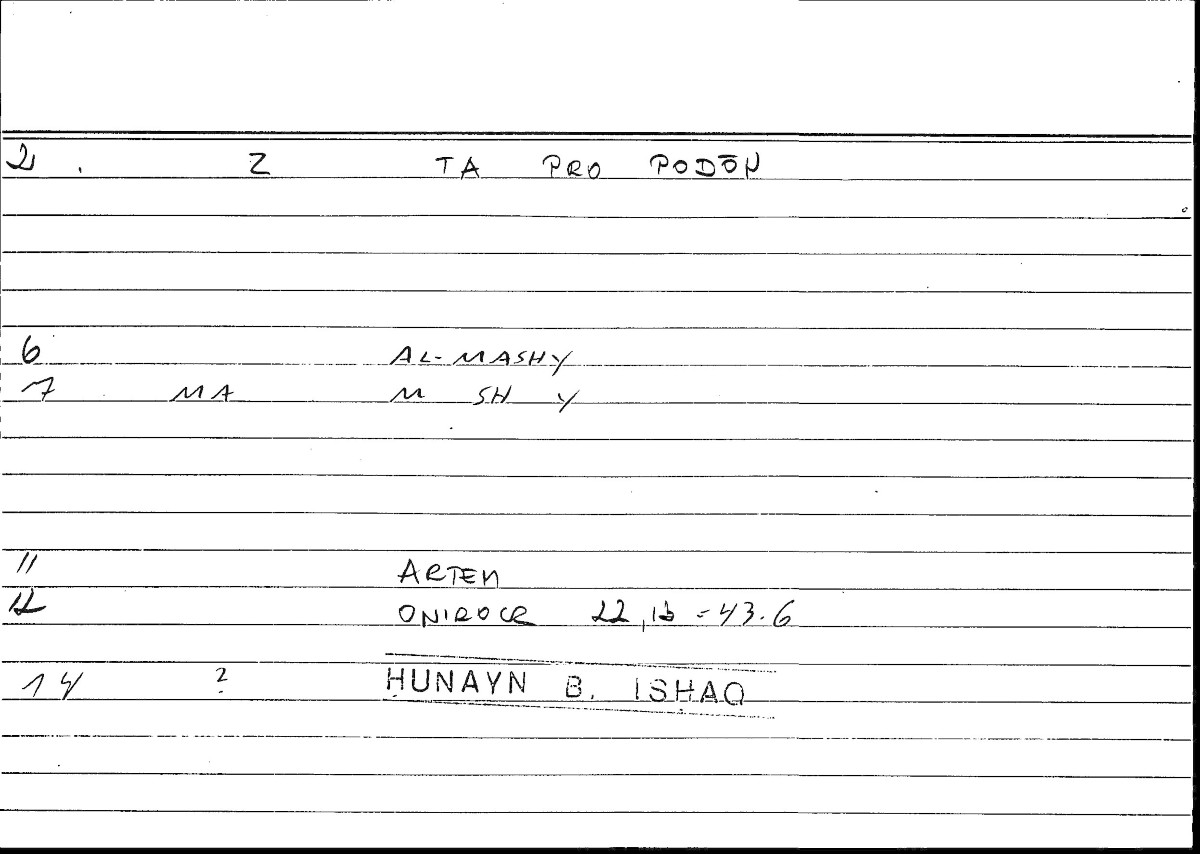 2. Z TA PRO PODŌN
6 AL-MASHY
7 MA M SH Y
11 ARTEM
12 ONIROCR 22,15 = 43.6
14 ? ḤUNAYN B. ISḤAQ